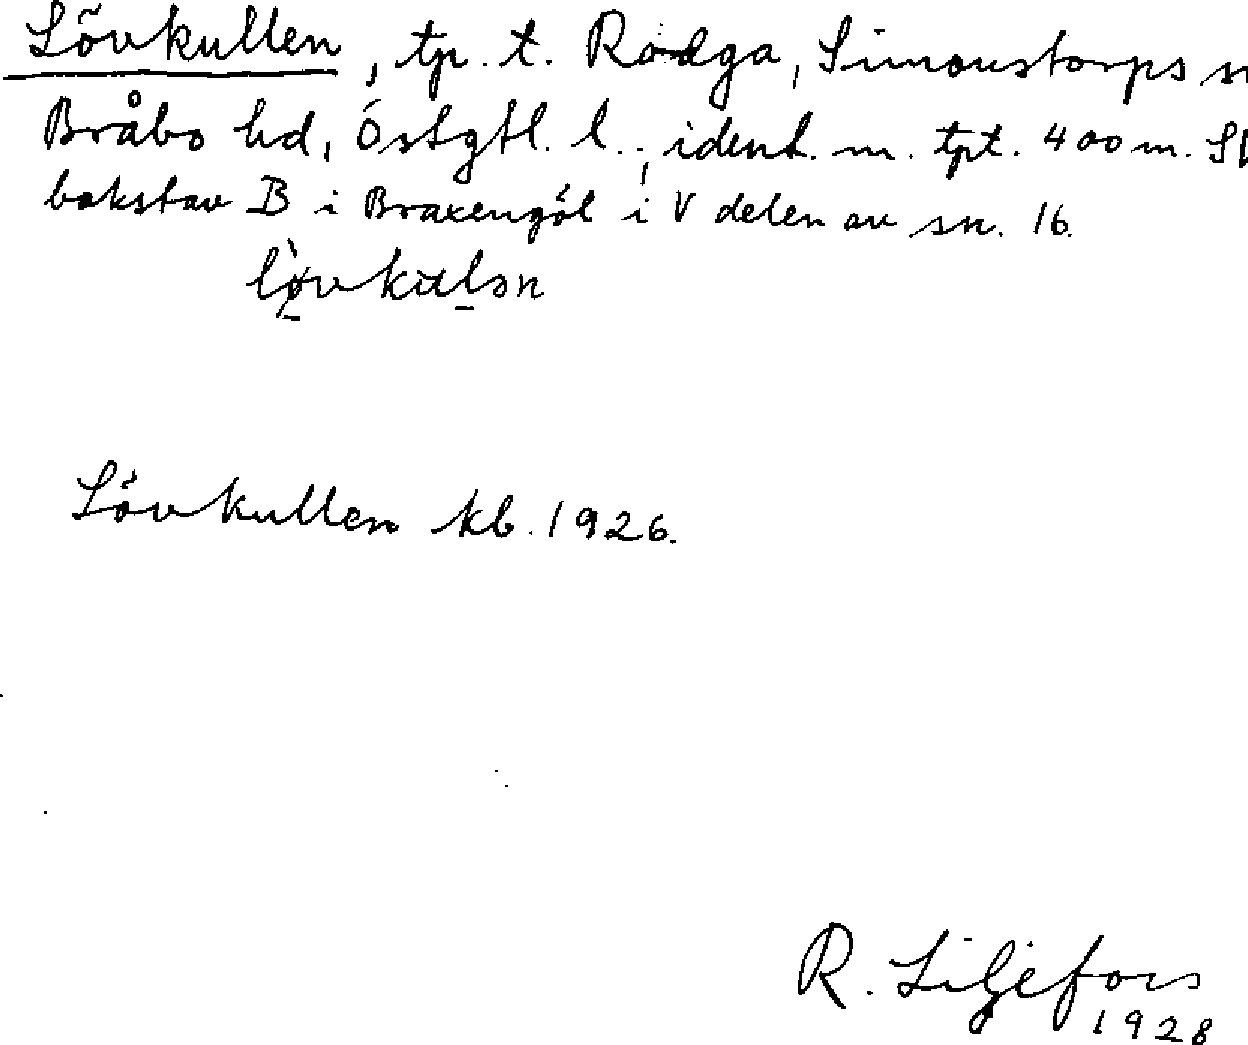 Lövkullen, tp. t. Rodga, Simonstorps sn
Bråbo hd, Östgtl. l., ident. m. tpt. 400 m. SV
bokstav B i Braxengöl i V delen av sn. 16.
Lövkullen kb. 1926.
R. Liljefors
1928